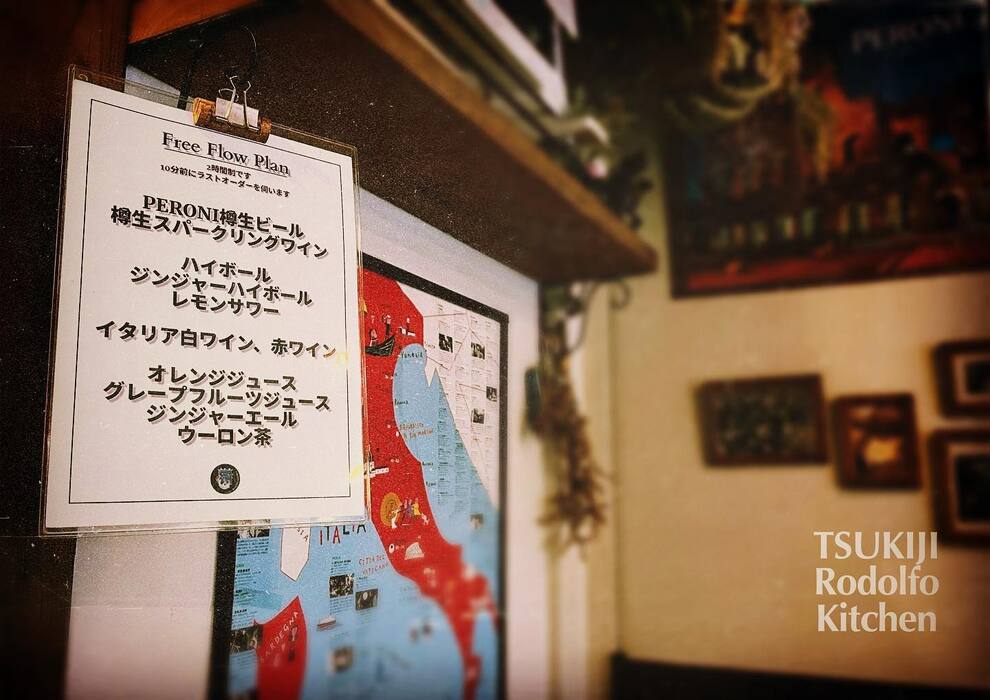 Free Flow Plan
2時間制です
10分前にラストオーダーを伺います
PERONI樽生ビール
樽生スパークリングワイン
ハイボール
ジンジャーハイボール
レモンサワー
イタリア白ワイン、赤ワイン
オレンジジュース
グレープフルーツジュース
ジンジャーエール
ウーロン茶
PERONI
ITALIA
SARDEGNA
TSUKIJI
Rodolfo
Kitchen